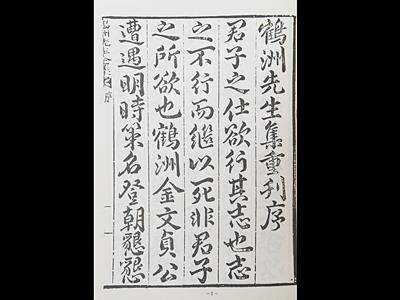 鶴洲先生集重刋序
君子之仕欲行其志也志
之不行而繼以死非君子
之所欲也鶴洲金文貞公
遭遇明時策名登朝懇懇
鶴洲先生全集 序
一